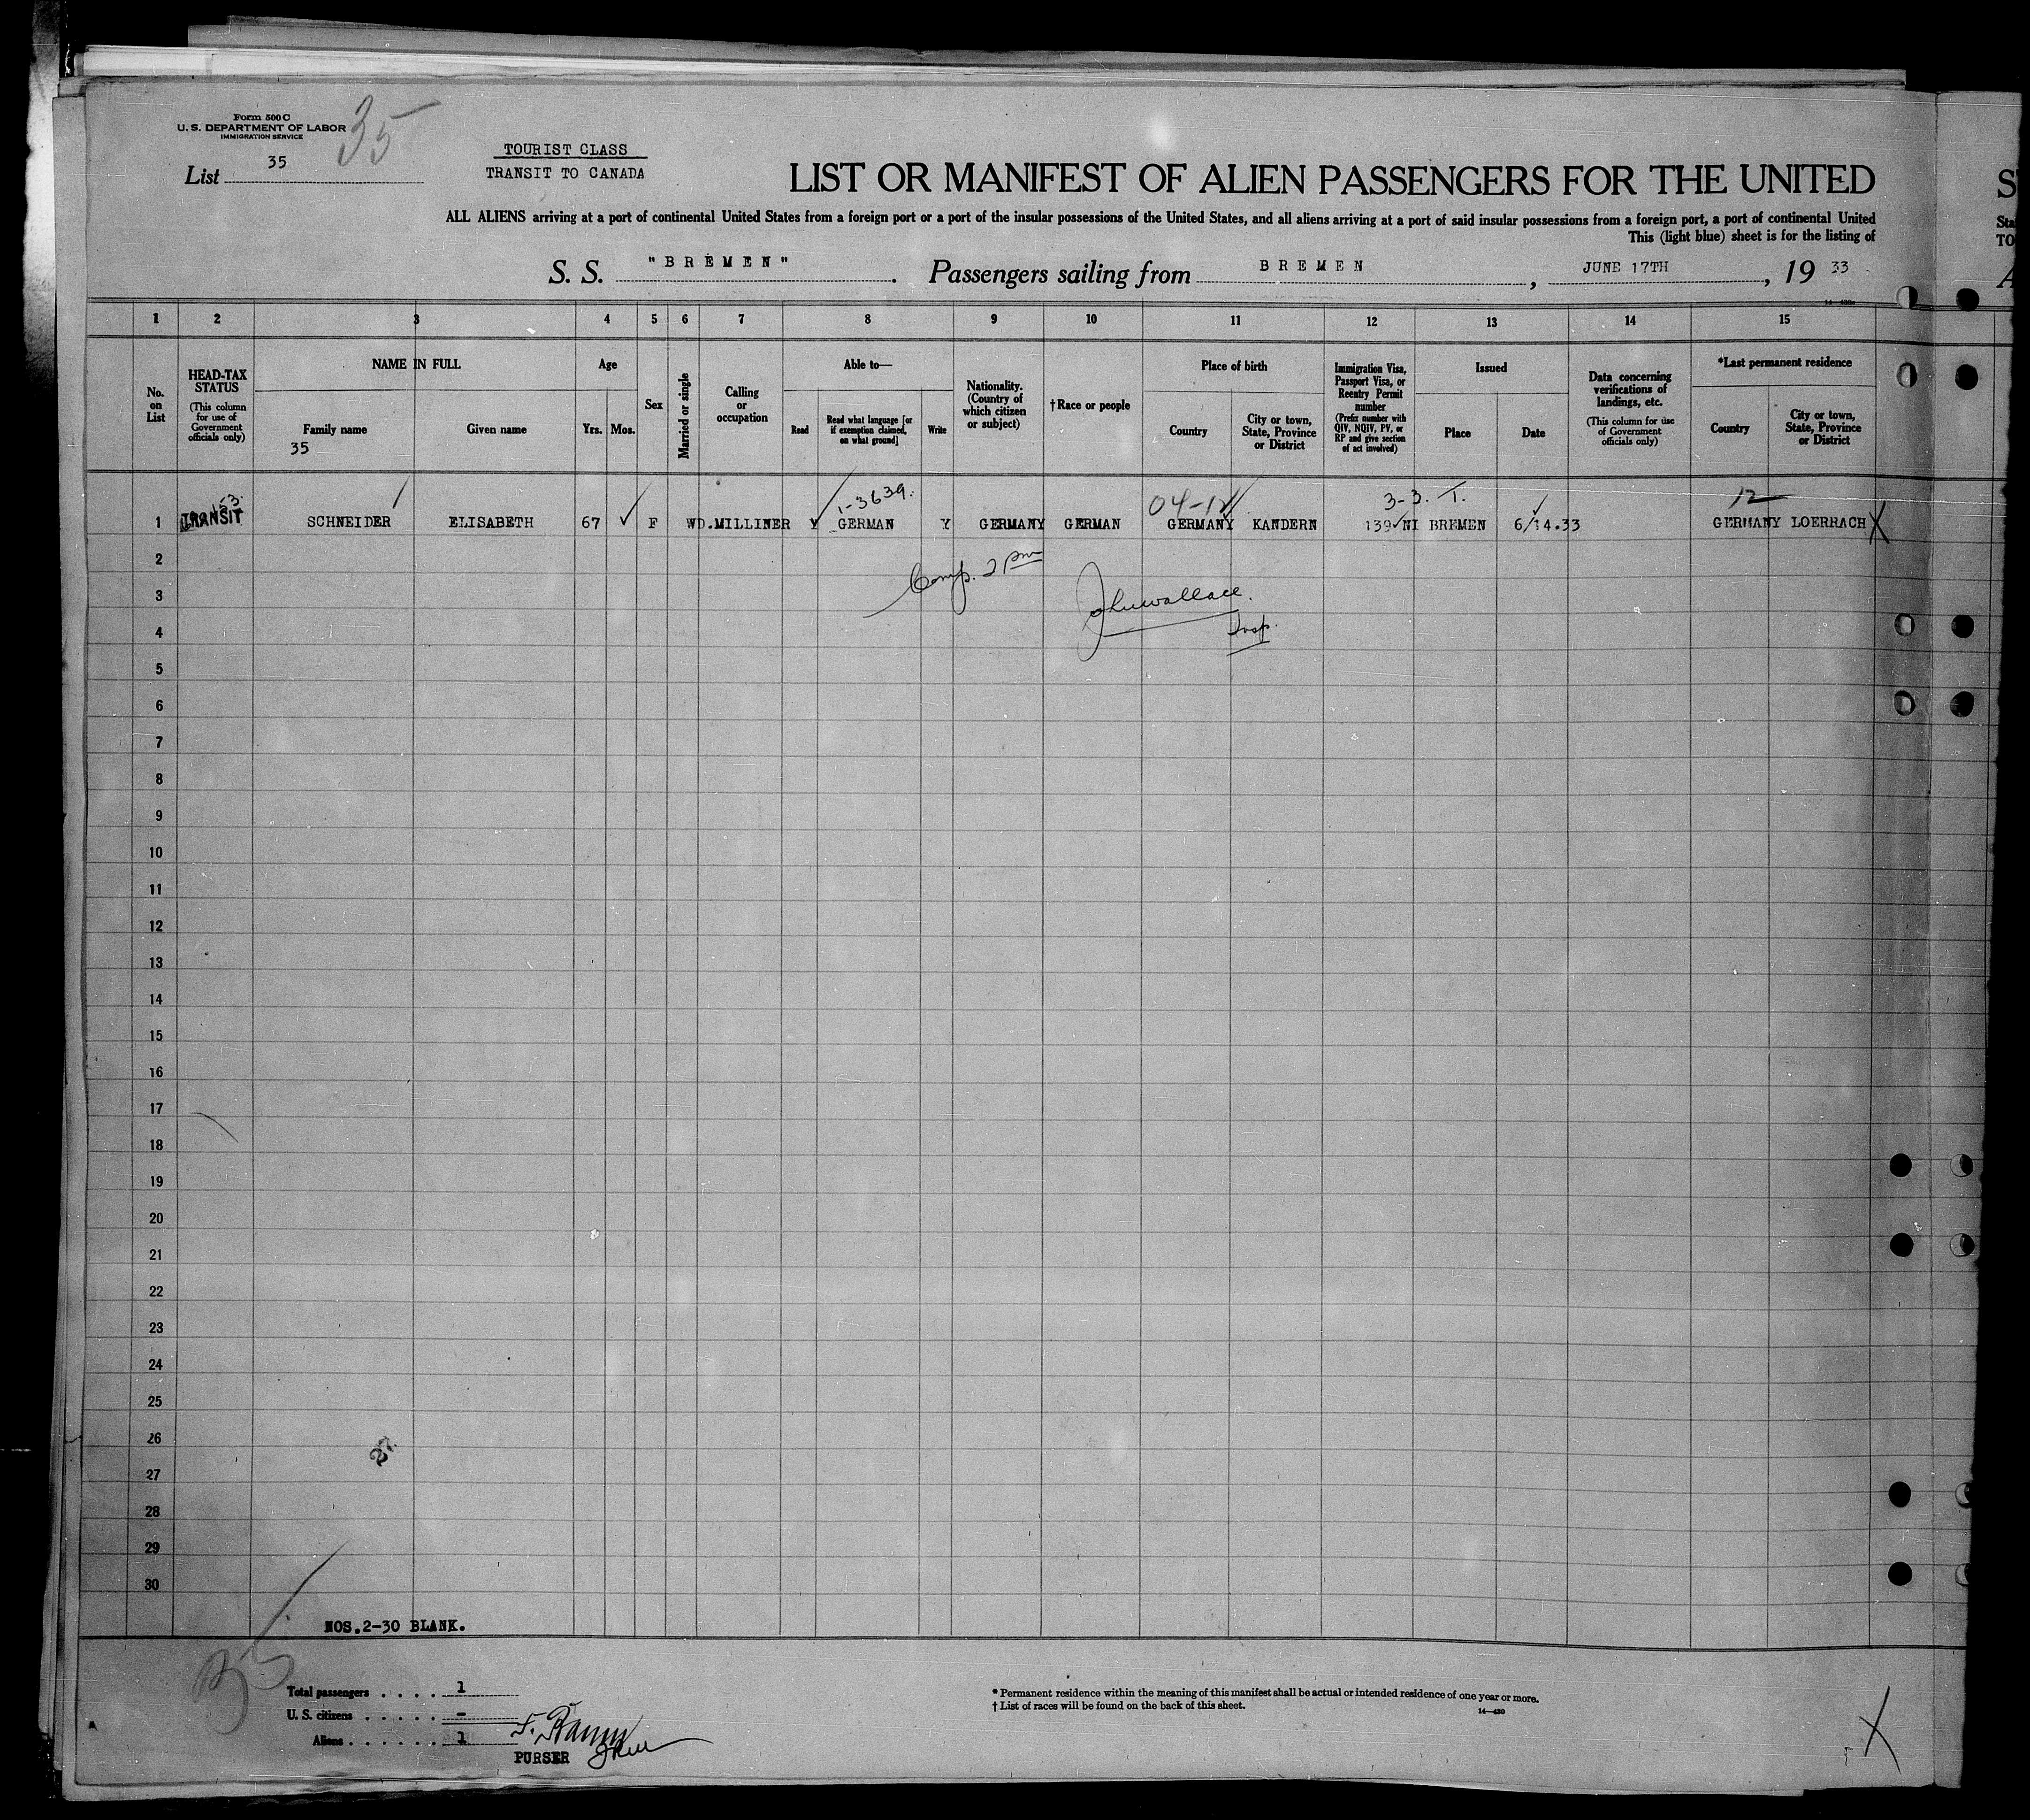 Form 500 C
U. S. DEPARTMENT OF LABOR
IMMIGRATION SERVICE
35
List 35
TOURIST CLASS
TRANSIT TO CANADA
LIST OR MANIFEST OF ALIEN PASSENGERS FOR THE UNITED
ALL ALIENS arriving at a port of continental United States from a foreign port or a port of the insular possessions of the United States, and all aliens arriving at a port of said insular possessions from a foreign port, a port of continental United
This (light blue) sheet is for the listing of
S. S. "BREMEN". Passengers sailing from BREMEN, JUNE 17TH, 19 33
1 2 3 4 5 6 7 8 9 10 11 12 13 14 15
No. on List
HEAD-TAX STATUS
(This column for use of Government officials only)
NAME IN FULL
Family name
Given name
35
Age
Yrs. Mos.
Sex
Married or single
Calling or occupation
Able to—
Read
Read what language [or if exemption claimed, on what ground]
Write
Nationality. (Country of which citizen or subject)
†Race or people
Place of birth
Country
City or town, State, Province or District
Immigration Visa, Passport Visa, or Reentry Permit number
(Prefix number with QIV, NQIV, PV, or RP and give section of act involved)
Issued
Place
Date
Data concerning verifications of landings, etc.
(This column for use of Government officials only)
*Last permanent residence
Country
City or town, State, Province or District
1-3639. 04-12 3-3. T. 12
1 TRANSIT SCHNEIDER ELISABETH 67 F WD. MILLINER Y GERMAN Y GERMANY GERMAN GERMANY KANDERN 139 NI BREMEN 6/14.33 GERMANY LOERRACH X
2
Comp. 2 pm
3
John Wallace.
4
Insp.
5
6
7
8
9
10
11
12
13
14
15
16
17
18
19
20
21
22
23
24
25
26
27
27
28
29
30
NOS.2-30 BLANK.
Total passengers . . . . 1
U. S. citizens . . . . . –
Aliens . . . . . . 1
PURSER
* Permanent residence within the meaning of this manifest shall be actual or intended residence of one year or more.
† List of races will be found on the back of this sheet.
14—430
X